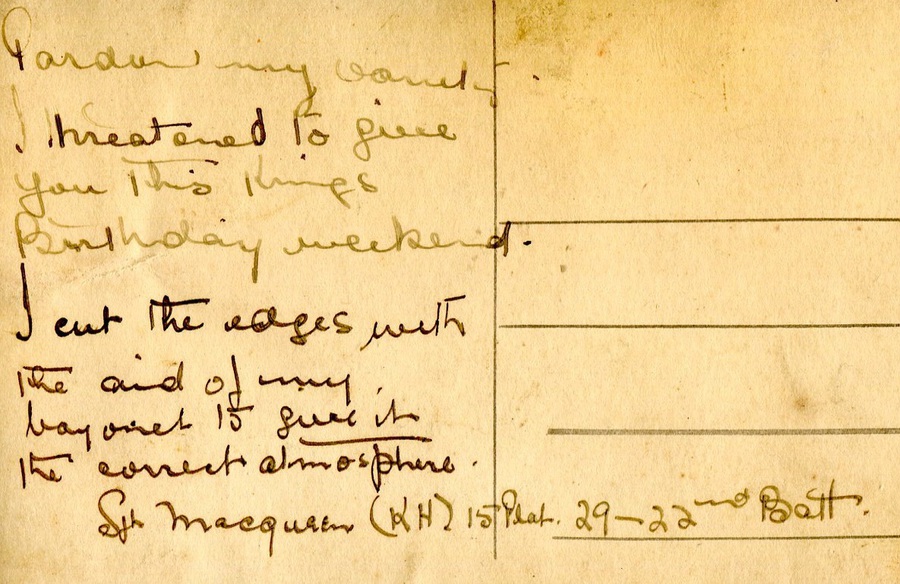 Pardon my vanity.
I threatened to give
you this Kings
Birthday weekend.
I cut the edges with
the aid of my
bayonet to give it
the correct atmosphere.
Sgt Macqueen (KH) 15 Plat. 29-22nd Batt.